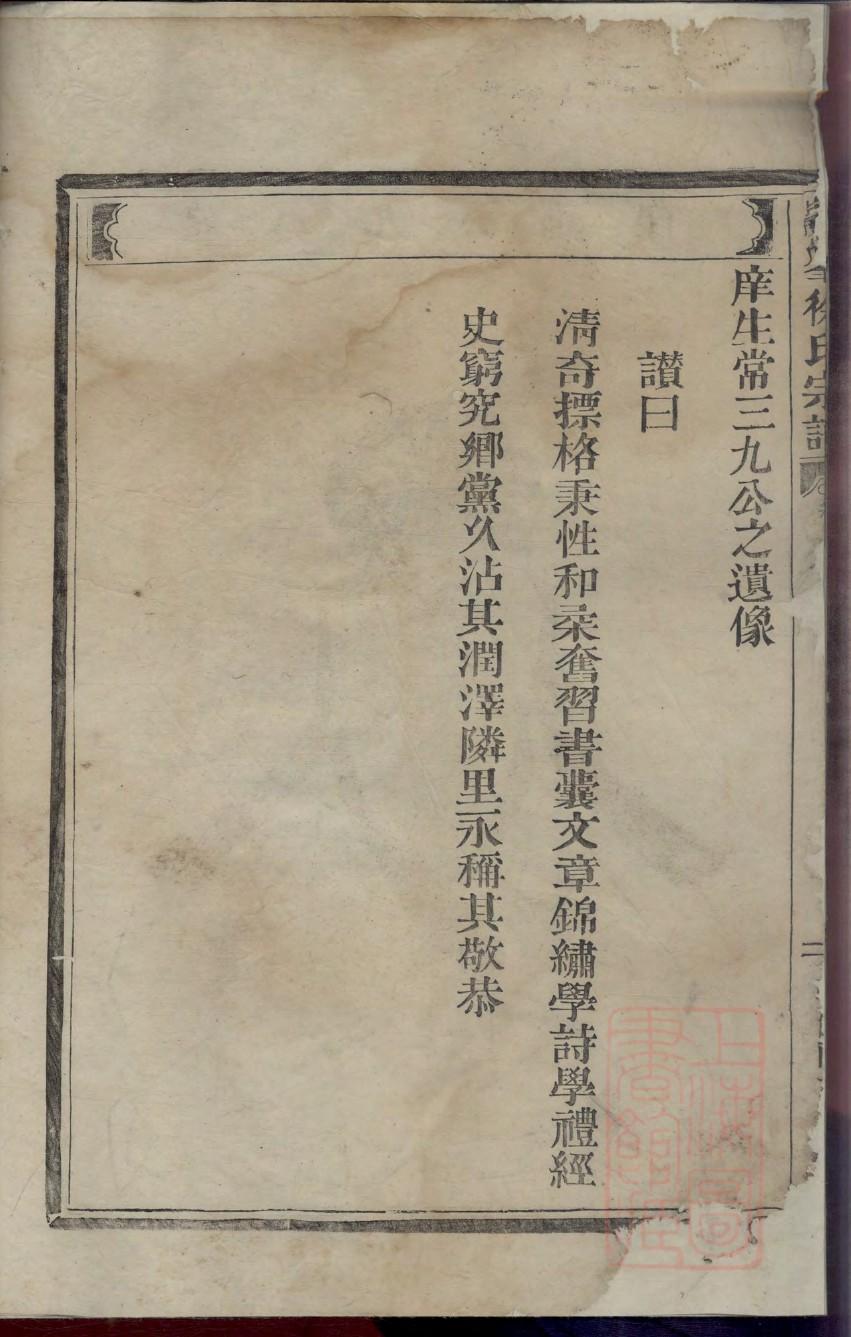 徐氏宗譜
庠生常三九公之遺像
讃曰
淸奇摽格秉性和柔奮習書囊文章錦繡學詩學禮經
史窮究鄉黨久沾其潤澤隣里永稱其敬恭
二
上海圖書館藏